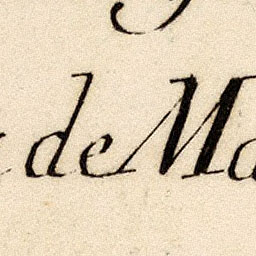 de Ma